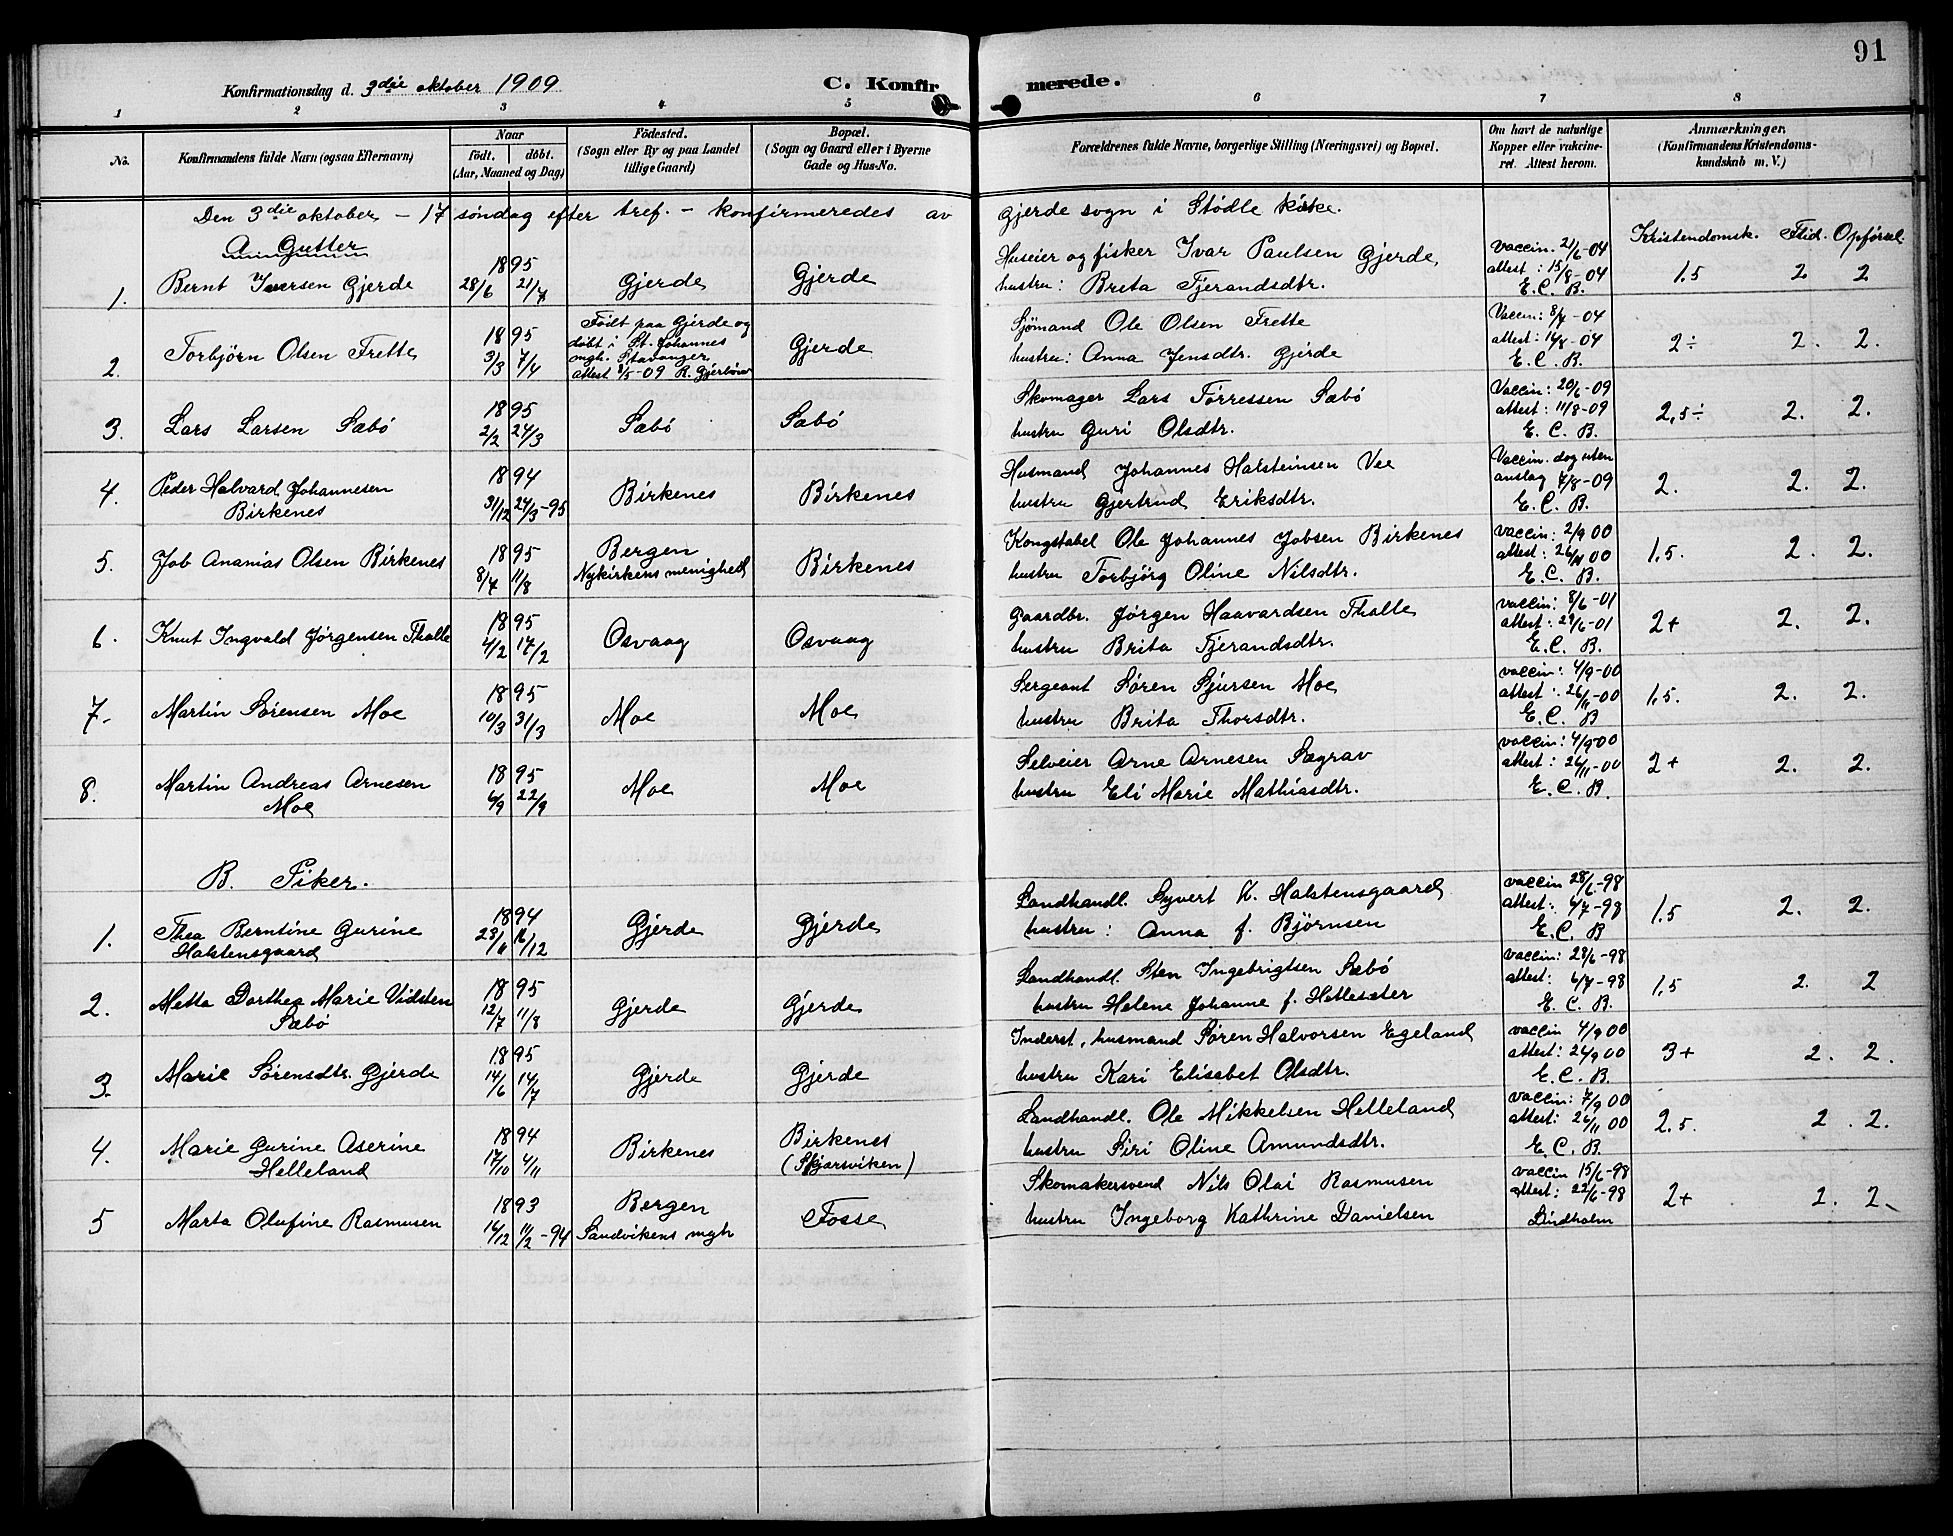 91
Konfirmationsdag d. 3die oktober 1909 C. Konfirmerede.
1 2 3 4 5 6 7 8
No. Konfirmandens fulde Navn (ogsaa Efternavn) Naar født. døbt. (Aar, Maaned og Dag) Fødested. (Sogn eller By og paa Landet tillige Gaard) Bopæl. (Sogn og Gaard eller i Byerne Gade og Hus-No. Forældrenes fulde Navne, borgerlige Stilling (Næringsvei) og Bopæl. Om havt de naturlige Kopper eller vakcineret. Attest herom. Anmærkninger. (Konfirmandens Kristendomskundskab m. V.)
Den 3die oktober - 17 søndag efter tref. - konfirmeredes av Gjerde sogn i Stødle kirke.
A. Gutter
Kristendomsk. Flid. Opførsel.
1. Bernt Iversen Gjerde 1895 28/6 21/7 Gjerde Gjerde
Huseier og fisker Ivar Paulsen Gjerde,
hustru: Brita Tjerandsdtr.
vaccin. 21/6-04
attest: 15/8-04
E. C. B.
1,5 2 2
2. Torbjörn Olsen Frette 1895 3/3 7/4
Født paa Gjerde og
døbt i St. Johannes
mgh. Stavanger
attest 8/5-09
Gjerde
Sjömand Ole Olsen Frette
hustru: Anna Jensdtr. Gjerde
Vaccin: 8/7-04
attest: 16/8-04
E. C. B.
2÷ 2. 2.
3. Lars Larsen Sæbö 1895 2/2 24/3 Sæbö Sæbö
Skomager Lars Torressen Sæbö
hustru Guri Olsdtr.
Vaccin: 20/6-09
attest: 11/8-09
E. C. B.
2,5÷ 2. 2.
4. Peder Halvard Johannesen
Birkenes 1894 31/12 24/3-95 Birkenes Birkenes
Husmand Johannes Halsteinsen Vee
hustru Gjertrud Eriksdtr.
Vaccin. dog uten
anslag 7/8-09
E. C. B.
2. 2. 2.
5. Job Ananias Olsen Birkenes 1895 8/7 11/8
Bergen
Nykirkens menighed
Birkenes
Kongstabel Ole Johannes Jobsen Birkenes
hustru Torbjörg Oline Nilsdtr.
vaccin: 2/9 00
attest: 26/11 00
E. C. B.
1,5. 2. 2.
6. Knut Ingvald Jørgensen Tholle 1895 4/2 17/2 Osvaag Osvaag
Gaardbr. Jørgen Haavardsen Tholle
hustru Brita Tjerandsdtr.
vaccin: 8/6-01
attest: 29/6-01
E. C. B.
2+ 2. 2.
7. Martin Sørensen Moe 1895 10/3 31/3 Moe Moe
Sergeant Søren Sjursen Moe
hustru Brita Thorsdtr.
vaccin: 4/9-00
attest: 26/11-00
E. C. B
1,5. 2. 2.
8. Martin Andreas Arnesen
Moe 1895 6/9 22/9 Moe Moe
Selveier Arne Arnesen Sægrav
hustru Eli Marie Mathiasdtr.
vaccin: 4/9 00
attest: 26/11-00
E. C. B.
2+ 2. 2.
B. Piker.
1. Thea Berntine Gurine
Halstensgaard 1894 23/11 16/12 Gjerde Gjerde
Landhandl. Syvert K. Halstensgaard
hustru: Anna f. Björnsen
vaccin 28/6-98
attest: 6/7-98
E. C. B
1,5 2. 2.
2. Metta Dorthea Marie Vidsten
Sæbö 1895 12/7 11/8 Gjerde Gjerde
Landhandl. Sten Ingebrigtsen Sæbö
hustru Helene Johanne f. Hetlesæter
vaccin: 28/6-98
attest: 6/7-98
E. C. B.
1,5 2. 2
3. Marie Sørensdtr. Gjerde 1895 14/6 14/7 Gjerde Gjerde
Inderst, husmand Søren Halvorsen Egeland
hustru Kari Elisabet Olsdtr.
vaccin 4/9 00
attest: 24/9 00
E. C. B.
3+ 2. 2.
4. Marie Gurine Aserine
Helleland 1894 17/10 4/11 Birkenes
Birkenes
(Skjarsviken)
Landhandl. Ole Mikkelsen Helleland
hustru Siri Oline Amundsdtr.
vaccin: 7/9 00
attest: 26/11 00
E. C. B.
2,5. 2. 2.
5 Marta Olufine Rasmusen 1893 14/12 11/2-94
Bergen
Sandvikens mgh
Fosse
Skomakersvend Nils Olai Rasmusen
hustru Ingeborg Kathrine Danielsen
vaccin 15/6-98
attest: 22/6-98
Lindholm
2+ 2. 2